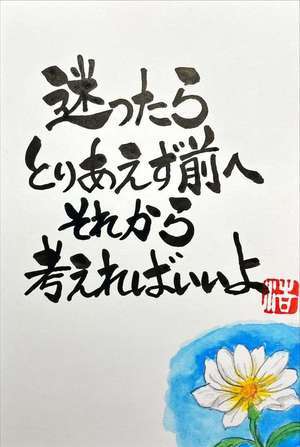 迷ったら
とりあえず前へ
それから
考えればいいよ